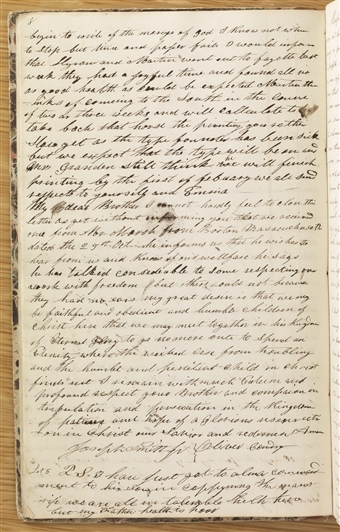 8
begin to wride of the mercys of god I know not when
to stop but time and paper fails I would inform
that Hyrum and Martin went out to fayette last
week they had a joyful time and found all in
as good health as could be expected Martin th
inks of coming to the South in the course
of two or three weeks and will calculate to
take back that horse the printing goes rather
Slow yet as the type founder has been sick
but we expect that the type will be on and
Mr. Granden still think we will finish
printing by the first of febuary we all send
respects to
My dear Brother I cannot hardly feel to close this
letter as yet without informing you that we received
one from Mr. Marsh from Boston Massachusetts
dated the 25th Oct. he informs us that he wishes to
hear from us and know of our wellfare he says
he has talked considerable to some respecting our
work with freedom but others could not because
they had no ears my great desire is that we may
be faithful and obedient and humble children of
Christ here that we may meet together in his kingdom
of Eternal Glory to go no more out to Spend an
Eternity where the wicked cees from troubling
and the humble and penitent child in Christ
finds rest I remain with much Esteem and
profound respect your Brother and companion in
tempulation and persecution in the Kingdom
of patience and hope of a Glorious resurrecti
on in Christ our Savior and redeemer Amen
Joseph Smith Jr Oliver Cowdry
P.S. I have just got to alma commend
ment to his son in coppying the manus
but my Father health is poor